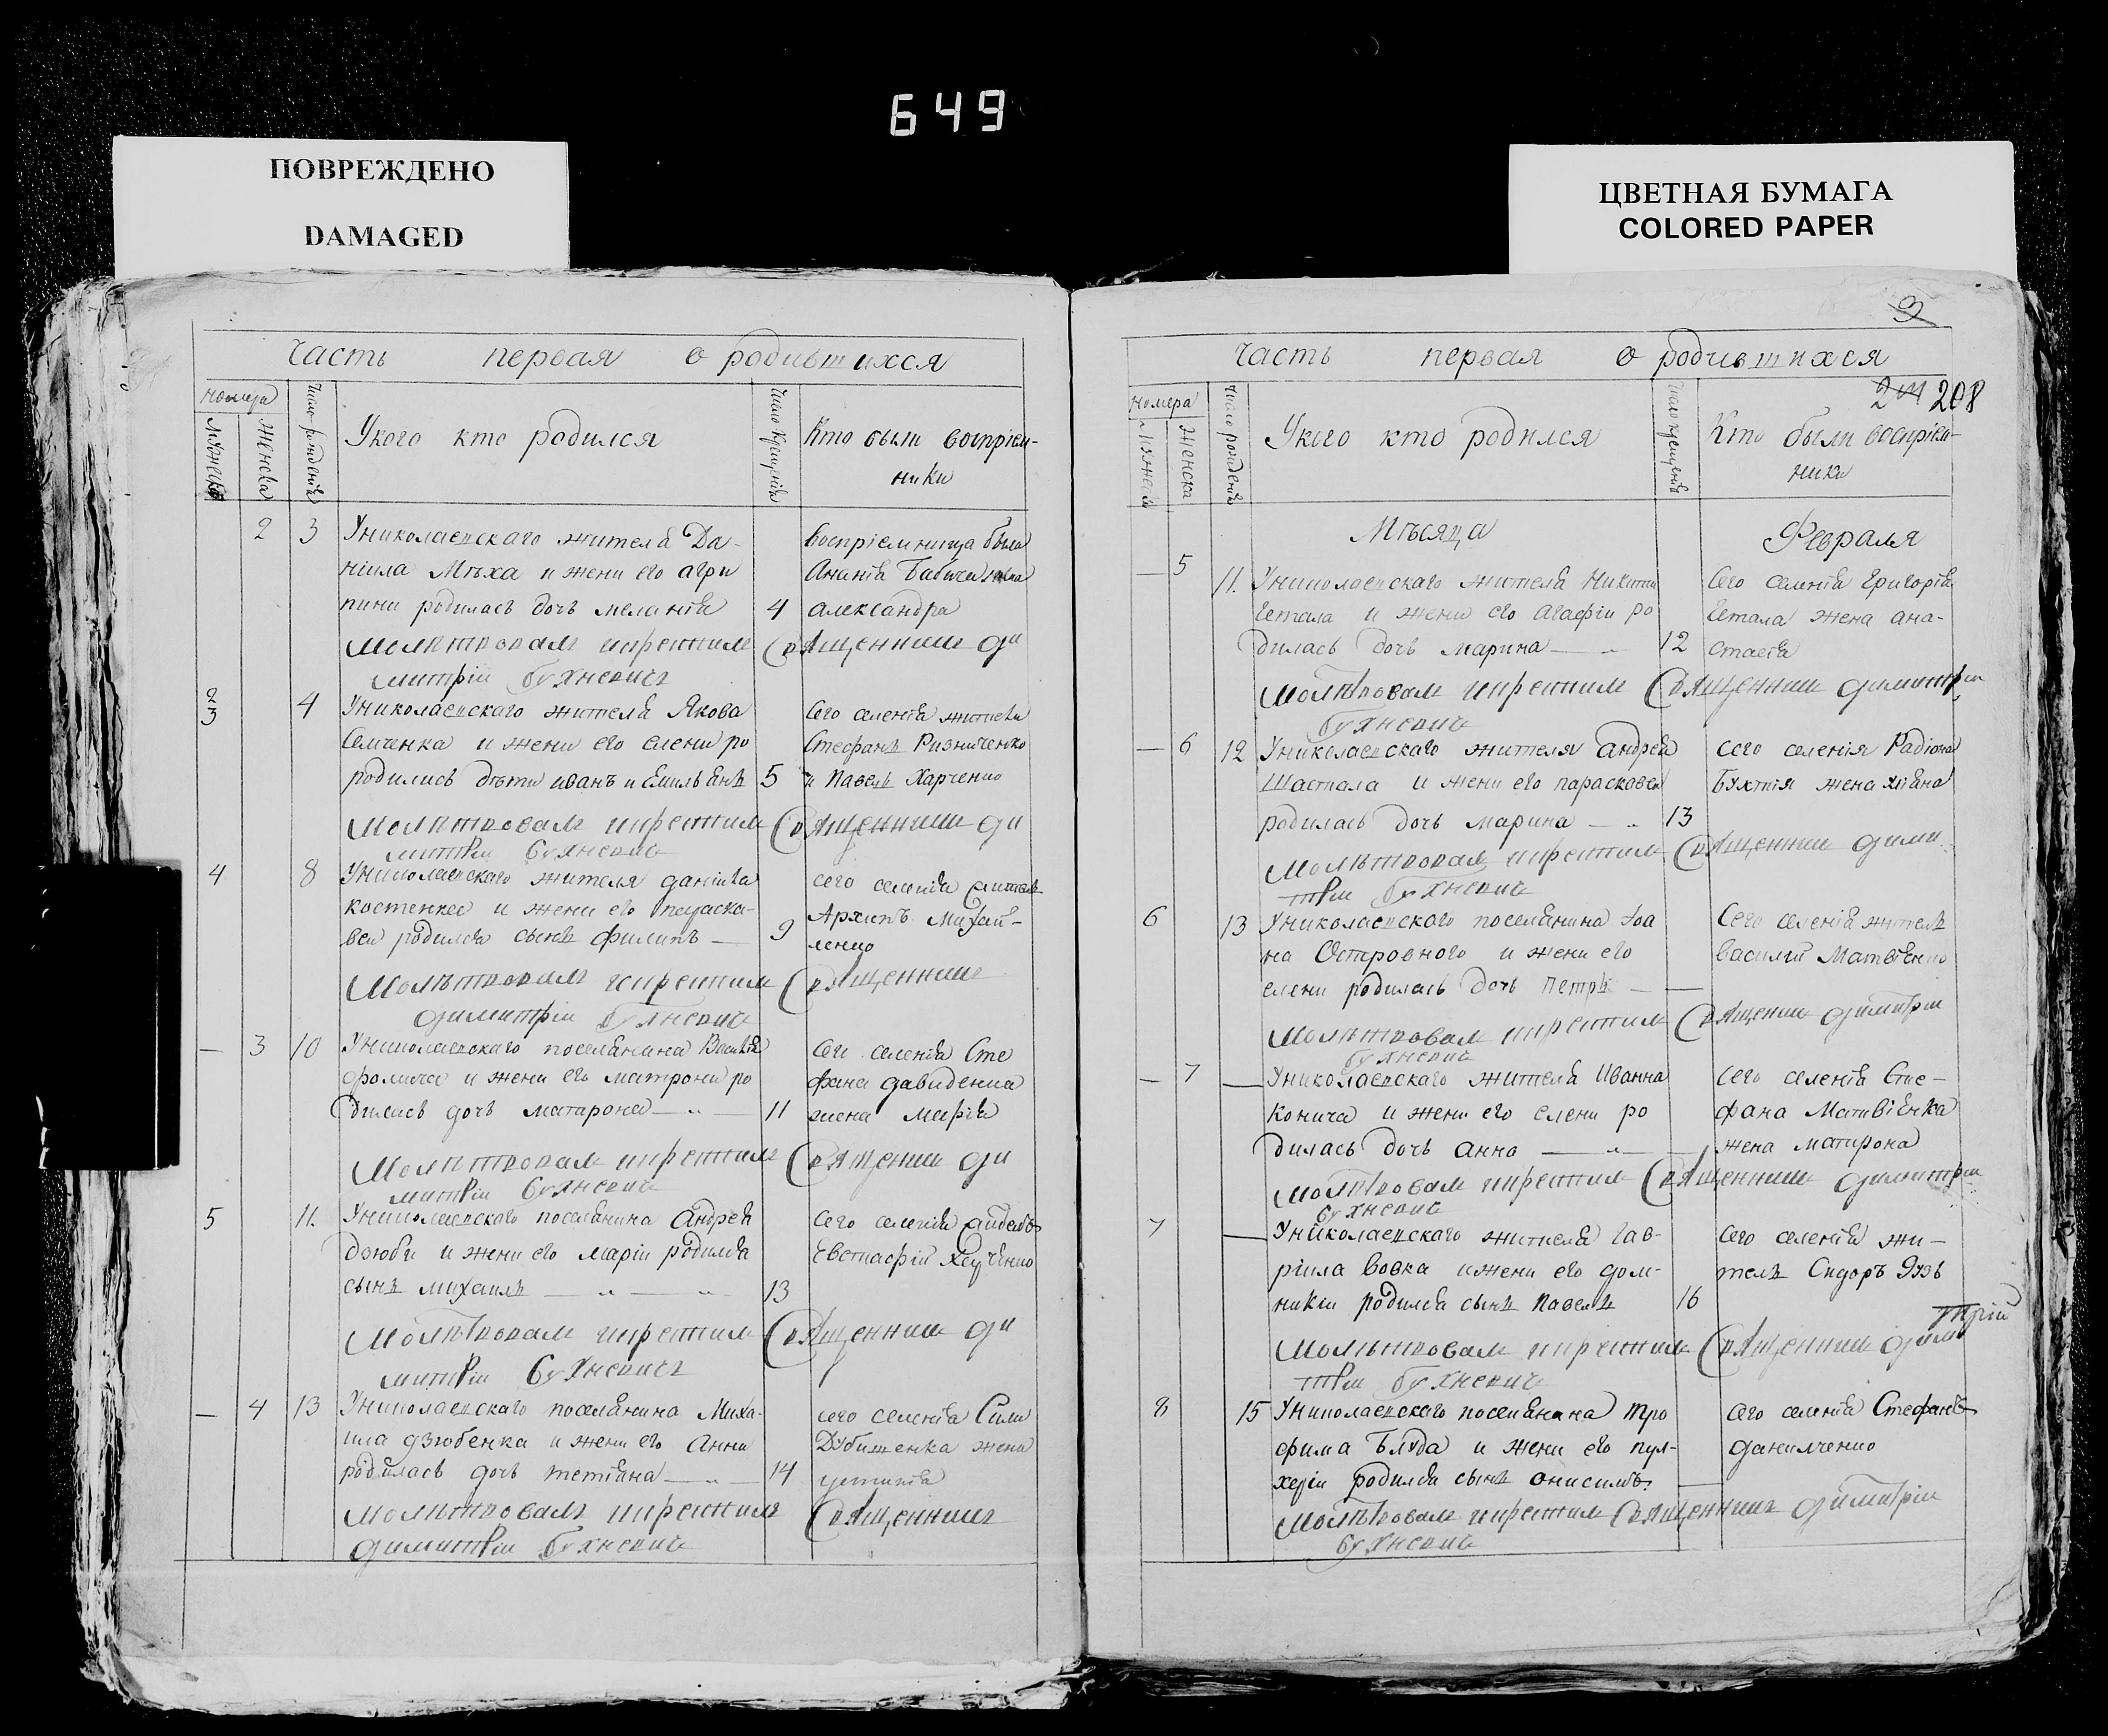 649
ПОВРЕЖДЕНО
DAMAGED
ЦВЕТНАЯ БУМАГА
COLORED PAPER
Часть первая о родившихся
номера
мужеска
женска
Число рождения
Укого кто родился
Число крещения
Кто были восприем-
ники
2 3 Униколаевскаго жителя Да-
ниила Мѣха и жени его агри
пини родилась дочь мелания 4
восприемница была
Анания Бабича жена
александра
Молитвовал и крестил Священник ди
митрий Бухневич
2
3 4 Униколаевскаго жителя Якова
Семченка и жени его елени ро
родились дѣти иванъ и Емильянъ 5
Сего селения жители
Стефанъ Ризниченко
и павелъ Харченко
Молитвовал и крестил Священник ди
митрий Бухневич
4 8 Униколаевскаго жителя данила
костенка и жени его параска-
веи родился сынъ филипъ — 9
сего селения житель
Архипъ Михай-
ленко
Молитвовал и крестил Священник
димитрий Бухневич
— 3 10 Униколаевскаго поселянина Василия
фомича и жени его матрони ро
дилась дочь матарона — 11
Сего селения Сте
фана давиденка
жена Мария
Молитвовал и крестил Священник ди
митрий Бухневич
5 11. Униколаевскаго поселянина андрея
дзюби и жени его марии родился
сынъ михаилъ — 13
Сего селения
Евстафий
Молитвовал и крестил Священник ди
митрий Бухневич
— 4 13 Униколаевскаго поселянина Миха-
ила дзюбенка и жени его Анни
родилась дочь тетяна — 14
сего селения Сили
Дубишенка жена
устиния
Молитвовал и крестил Священник
димитрий Бухневич
9
Часть первая о родившихся
208
номера
мужеск
женска
Число рождения
Укого кто родился
Число крещения
Кто были восприем-
ники
Мѣсяца Февраля
— 5 11. Униколаевскаго жителя Никити
Гетала и жени его агафии ро
дилась дочь марина — 12
Сего селения Григория
Гетала жена ана-
стасия
Молитвовал и крестил Священник димитрий
Бухневич
— 6 12 Униколаевскаго жителя андрея
Шастала и жени его параскавеи
родилась дочь марина — 13
сего селения Радиона
Бухтия жена
Молитвовал и крестил Священник дими
трий Бухневич
6 13 Униколаевскаго поселянина Іоа
на Островного и жени его
елени родилась дочь петръ —
Сего селения житель
василий Матвиенко
Молитвовал и крестил Священник димитрий
Бухневич
— 7 — Униколаевскаго жителя Иванна
Конича и жени его елени ро
дилась дочь анна —
Сего селения Сте-
фана Матвиенка
жена матрона
Молитвовал и крестил Священник димитрий
Бухневич
7 — Униколаевскаго жителя гав-
риила вовка и жени его дом-
никии родился сынъ павелъ 16
Сего селения жи-
тель Сидоръ
Молитвовал и крестил Священник дими
трий
трий Бухневич
8 15 Униколаевскаго поселянина тро
фима Блуда и жени его пул-
херии родился сынъ онисимъ.
Сего селения Стефанъ
данилченко
Молитвовал и крестил Священник димитрий
Бухневич